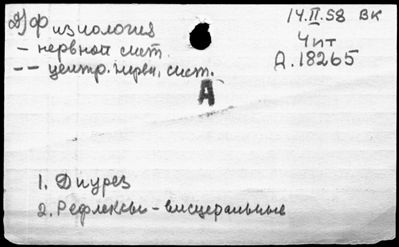 Д) Физиология
- нервной сист.
-- центр. нервн. сист.
14.II.58 ВК
Чит
Д.18265
А
1. Диурез
2. Рефлексы - висцеральные